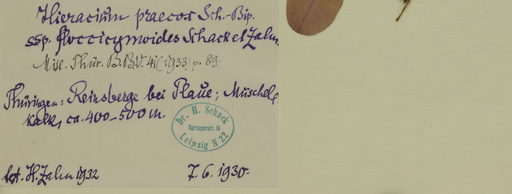 Hieracium praecox Sch.-Bip.
ssp. floccicymoides Schack et Zahn.
Mitt. Thür. B.V. 41 (1933) p. 89.
Thüringen: Reinsberge bei Plaue; Muschel-
kalk, ca. 400-500 m.
Dr. H. Schack
Leipzig N 22
det. H. Zahn 1932
7.6.1930.